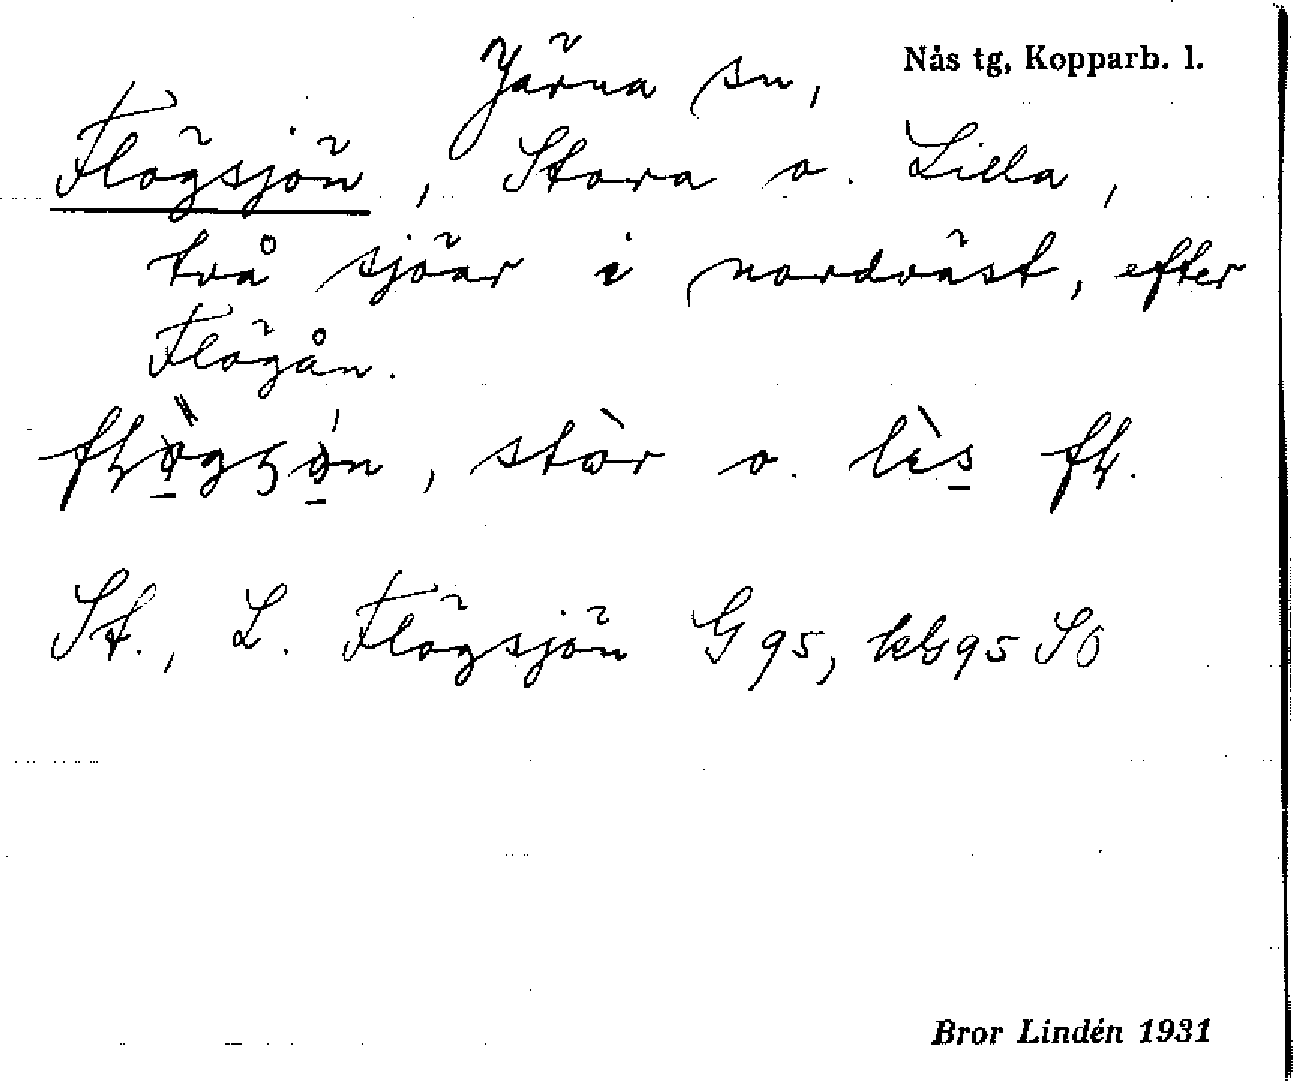 Järna sn, Nås tg, Kopparb. l.
Flögsjön, Stora o. Lilla,
två sjöar i nordväst, efter
Flögån.
stòr o. lìs fɬ.
St., L. Flögsjön G 95, kbg95 SÖ
Bror Lindén 1931